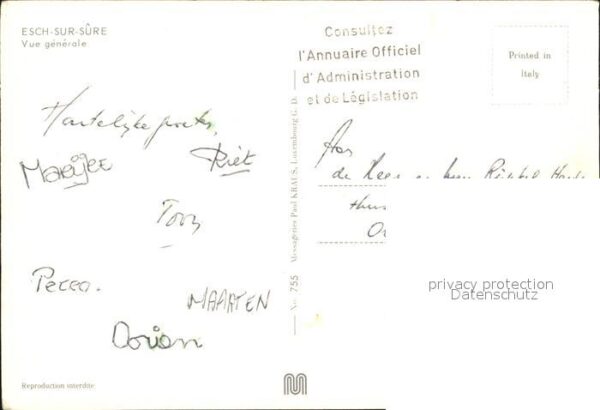 ESCH-SUR-SÛRE
Vue générale
Consultez
l'Annuaire Officiel
d'Administration
et de Législation
Printed in
Italy
Hartelijke groeten,
Riet
Marijke
Tom
Petra.
MAARTEN
Dorian
No. 755 Messageries Paul KRAUS, Luxembourg G. D.
Aan
de Heer en Mevr
privacy protection
Datenschutz
Reproduction interdite